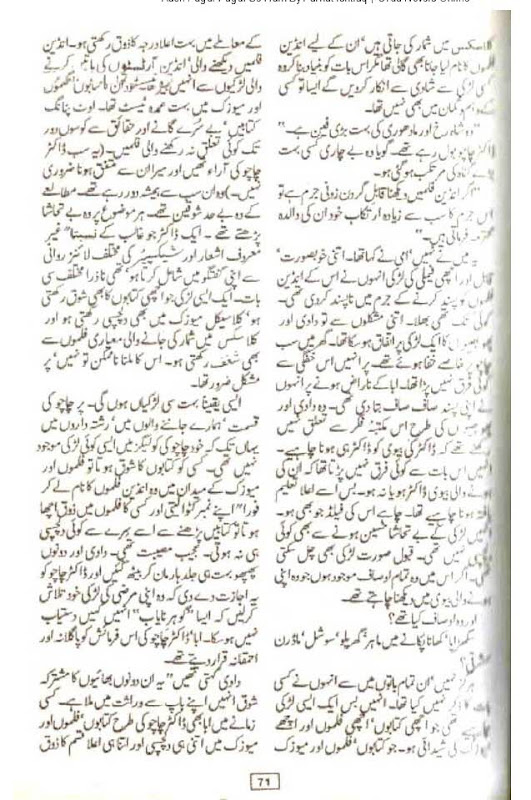 کلاسکس میں شمار کی جاتی ہیں‘ ان کے لیے انڈین
فلموں کا نام لیا جانا بھی گالی تھا مگر اس بات کو بنیاد بنا کر وہ
کسی لڑکی سے شادی سے انکار کر دیں گے ایسا تو کسی
کے وہم و گمان میں بھی نہیں تھا۔
”وہ شاہ رخ اور مادھوری کی بہت بڑی فین ہے۔“
ڈاکٹر چاچو بول رہے تھے۔ گویا وہ بے چاری کسی بہت
بڑے گناہ کی مرتکب ہو گئی ہو۔
”اگر انڈین فلمیں دیکھنا قابل گردن زدنی جرم ہے تو
اس جرم کا سب سے زیادہ ارتکاب خود ان کی والدہ
محترمہ فرماتی ہیں۔“
یہ میں نے نہیں‘ امی نے کہا تھا۔ اتنی خوبصورت‘
قابل اور اچھی فیملی کی لڑکی انہوں نے اس کے انڈین
فلموں کو پسند کرنے کے جرم میں ناپسند کر دی تھی۔
کوئی تک تھی بھلا۔ اتنی مشکلوں سے تو دادی اور
پھوپھیوں کا ایک لڑکی پر اتفاق ہو سکا تھا۔ گھر میں سب
چاچو پر خاصے خفا ہوئے تھے۔ پر انہیں اس خفگی سے
کوئی فرق نہیں پڑا تھا۔ ابا کے ناراض ہونے پر انہوں
نے اپنی پسند صاف صاف بتا دی تھی۔ وہ دادی اور
پھوپھیوں کی طرح اس مکتبہ فکر سے تعلق نہیں
رکھتے تھے کہ ڈاکٹر کی بیوی کو ڈاکٹر ہی ہونا چاہیے۔
انہیں اس بات سے کوئی فرق نہیں پڑتا تھا کہ ان کی
ہونے والی بیوی ڈاکٹر ہو یا نہ ہو۔ بس اسے اعلا تعلیم
یافتہ ہونا چاہیے تھا۔ چاہے اس کی فیلڈ جو بھی ہو۔
انہیں لڑکی کے بے تحاشا حسین ہونے سے بھی کوئی
دلچسپی نہیں تھی۔ قبول صورت لڑکی بھی چل سکتی
تھی۔ اگر اس میں وہ تمام اوصاف موجود ہوں جو وہ اپنی
ہونے والی بیوی میں دیکھنا چاہتے تھے۔
اور وہ اوصاف کیا تھے؟
سگھڑاپا‘ کھانا پکانے میں ماہر‘ گھریلو‘ سوشل‘ ماڈرن
مشرقی؟
ہرگز نہیں‘ ان تمام باتوں میں سے انہوں نے کسی
بات کا ذکر نہیں کیا تھا۔ انہیں بس ایک ایسی لڑکی
چاہیے تھی جو اچھی کتابوں‘ اچھی فلموں اور اچھے
میوزک کی شیدائی ہو۔ جو کتابوں‘ فلموں اور میوزک
کے معاملے میں بہت اعلا درجہ کا ذوق رکھتی ہو۔ انڈین
فلمیں دیکھنے والی‘ انڈین آرٹسٹوں کی باتیں کرنے
والی لڑکیوں سے انہیں چڑ تھا۔ خود ان کا کتابوں‘ فلموں
اور میوزک میں بہت عمدہ ٹیسٹ تھا۔ اوٹ پٹانگ
کتابیں‘ بے سرے گانے اور حقائق سے کوسوں دور
تک کوئی تعلق نہ رکھنے والی فلمیں۔ (یہ سب ڈاکٹر
چاچو کی آراء تھیں اور میرا ان سے متفق ہونا ضروری
نہیں۔) وہ ان سب سے ہمیشہ دور رہے تھے۔ مطالعے
کے وہ بے حد شوقین تھے۔ ہر موضوع پر وہ بے تحاشا
پڑھتے تھے۔ ایک ڈاکٹر جو غالب کے نسبتاً ”غیر
معروف اشعار اور شیکسپیئر کی مختلف لائنز روانی
سے اپنی گفتگو میں شامل کرتا ہو‘ تھی نا ذرا مختلف سی
بات۔ ایک ایسی لڑکی جو اچھی کتابوں کا بھی شوق رکھتی
ہو‘ کلاسیکل میوزک میں بھی دلچسپی رکھتی ہو اور
کلاسکس میں شمار کی جانے والی معیاری فلموں سے
بھی شغف رکھتی ہو۔ اس کا ملنا ناممکن تو نہیں‘ پر
مشکل ضرور تھا۔
ایسی یقیناً بہت سی لڑکیاں ہوں گی۔ پر چاچو کی
قسمت‘ ہمارے جاننے والوں میں‘ رشتہ داروں میں
یہاں تک کہ خود چاچو کی کولیگز میں ایسی کوئی لڑکی موجود
نہیں تھی۔ کسی کو کتابوں کا شوق ہوتا تو فلموں اور
میوزک کے میدان میں وہ انڈین فلموں کا نام لے کر
فوراً اپنے نمبر گنوا لیتی اور کسی کا فلموں میں ذوق اچھا
ہوتا تو کتابیں پڑھنے سے اسے سرے سے کوئی دلچسپی
ہی نہ ہوتی۔ عجیب مصیبت تھی۔ دادی اور دونوں
پھپھو بہت ہی جلد ہار مان کر بیٹھ گئیں اور ڈاکٹر چاچو کو
یہ اجازت دے دی کہ وہ اپنی مرضی کی لڑکی خود تلاش
کر لیں کہ ایسا ”گوہر نایاب“ انہیں کہیں دستیاب
نہیں ہو سکا۔ ابا‘ ڈاکٹر چاچو کی اس فرمائش کو پاگلانہ اور
احمقانہ قرار دیتے تھے۔
دادی کہتی تھیں ”یہ ان دونوں بھائیوں کا مشترکہ
شوق انہیں اپنے باپ سے وراثت میں ملا ہے۔ کسی
زمانے میں ابا بھی ڈاکٹر چاچو کی طرح کتابوں‘ فلموں اور
میوزک میں اتنی ہی دلچسپی اور اتنا ہی اعلا قسم کا ذوق
71